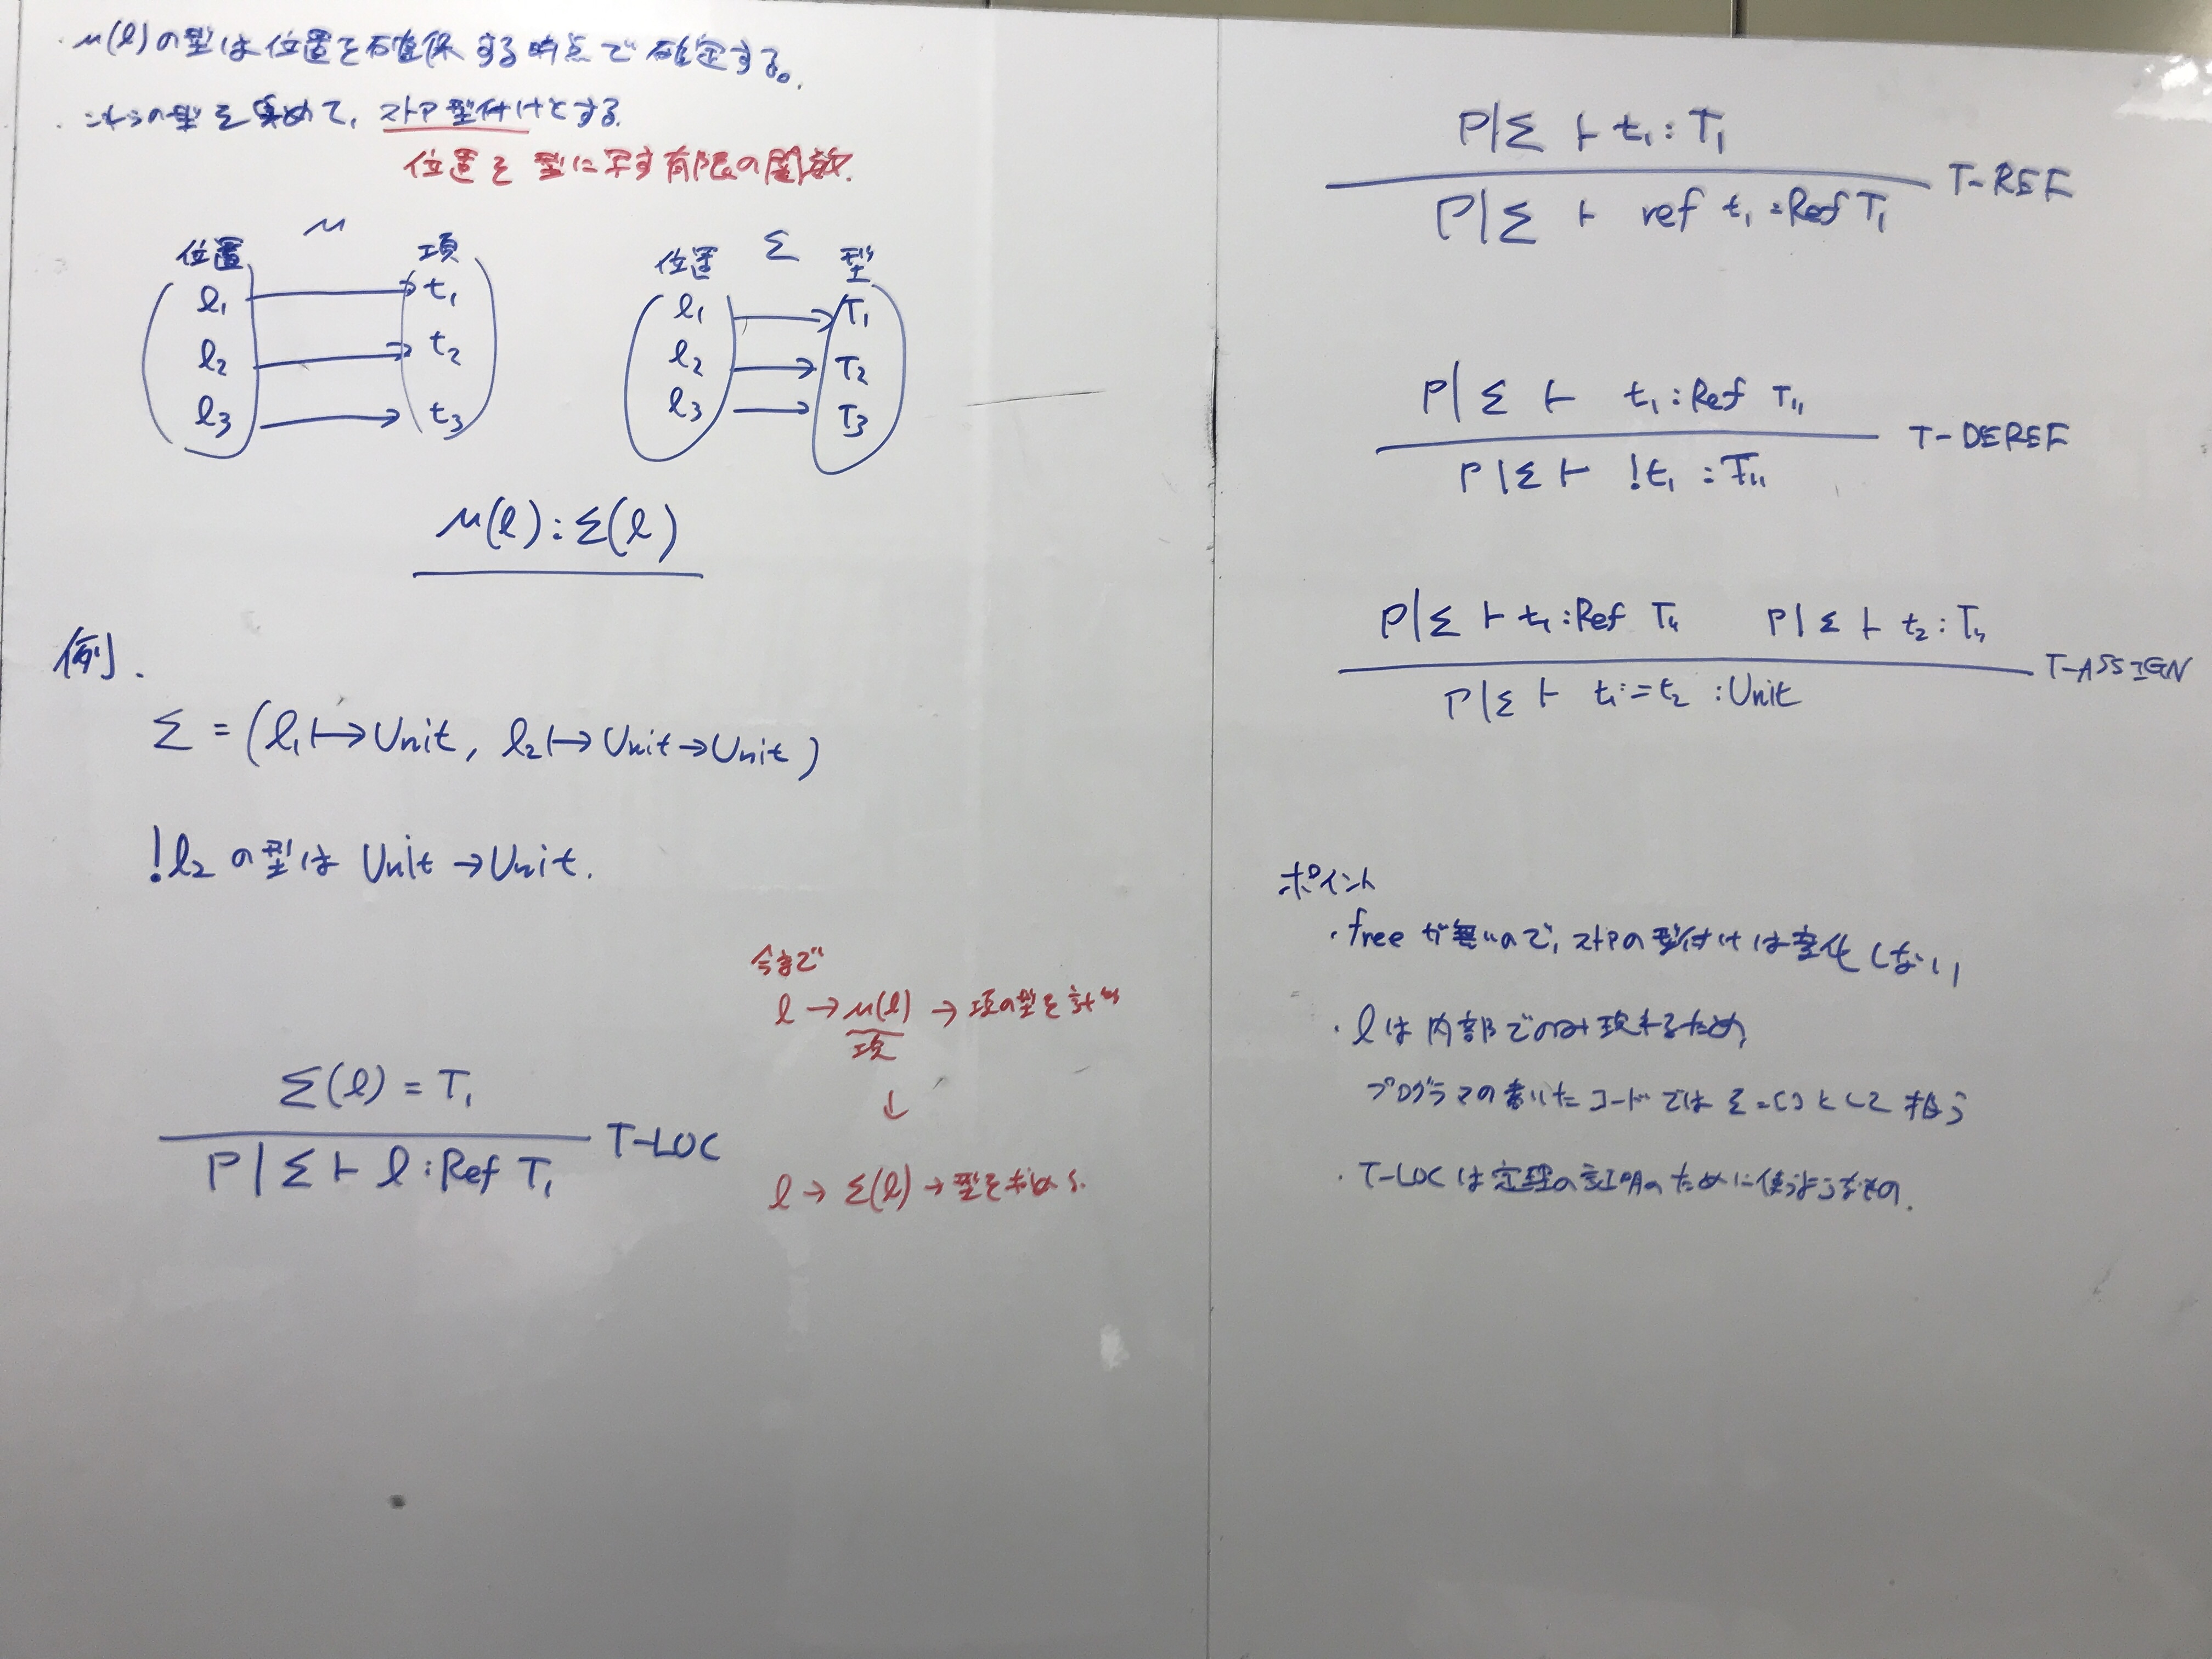 ・μ(l)の型は位置を確保する時点で確定する。
・これらの型を集めて、ストア型付けとする。
位置を型に写す有限の関数.
μ
位置 項
l₁ → t₁
l₂ → t₂
l₃ → t₃
Σ
位置 型
l₁ → T₁
l₂ → T₂
l₃ → T₃
μ(l):Σ(l)
例.
Σ = (l₁↦Unit, l₂↦Unit→Unit)
!l₂の型は Unit→Unit.
今まで
l → μ(l) → 項の型を計算
項
↓
l → Σ(l) → 型を求める.
Σ(l) = T₁
Γ|Σ ⊢ l:Ref T₁ T-LOC
Γ|Σ ⊢ t₁:T₁
T-REF
Γ|Σ ⊢ ref t₁:Ref T₁
Γ|Σ ⊢ t₁:Ref T₁₁
T-DEREF
Γ|Σ ⊢ !t₁:T₁₁
Γ|Σ ⊢ t₁:Ref T₁₁ Γ|Σ ⊢ t₂:T₁₁
T-ASSIGN
Γ|Σ ⊢ t₁:=t₂ :Unit
ポイント
・freeが無いので、ストアの型付けは変化しない
・lは内部でのみ現れるため、
プログラマの書いたコードでは Σ=()として扱う
・T-LOCは定理の証明のために使うようなもの.